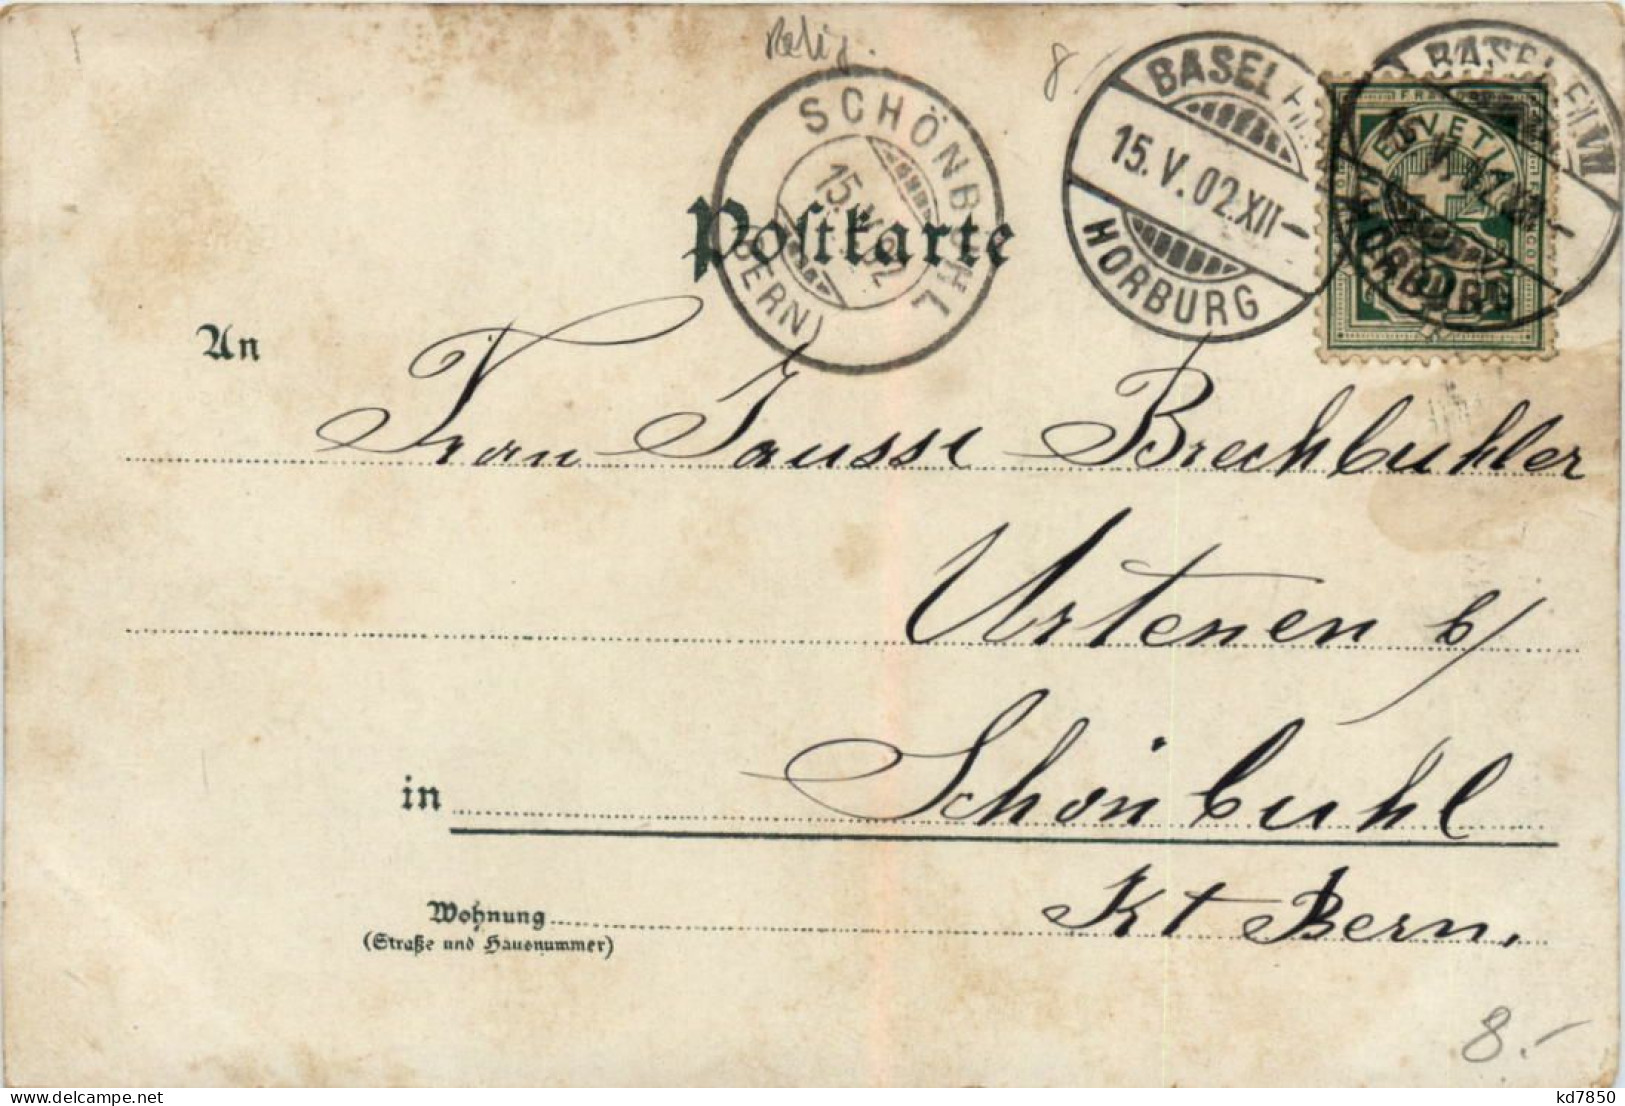 Relig.
8
SCHÖNBÜHL
15.V.02
(BERN)
BASEL
15.V.02.XII-
HORBURG
BASEL
HORBURG
FRANCO
HELVETIA
Postkarte
An
Frau Jaussi Brechbuhler
Urtenen b/
in Schönbuhl
Kt Bern.
Wohnung
(Straße und Hausnummer)
8.-
kd7850